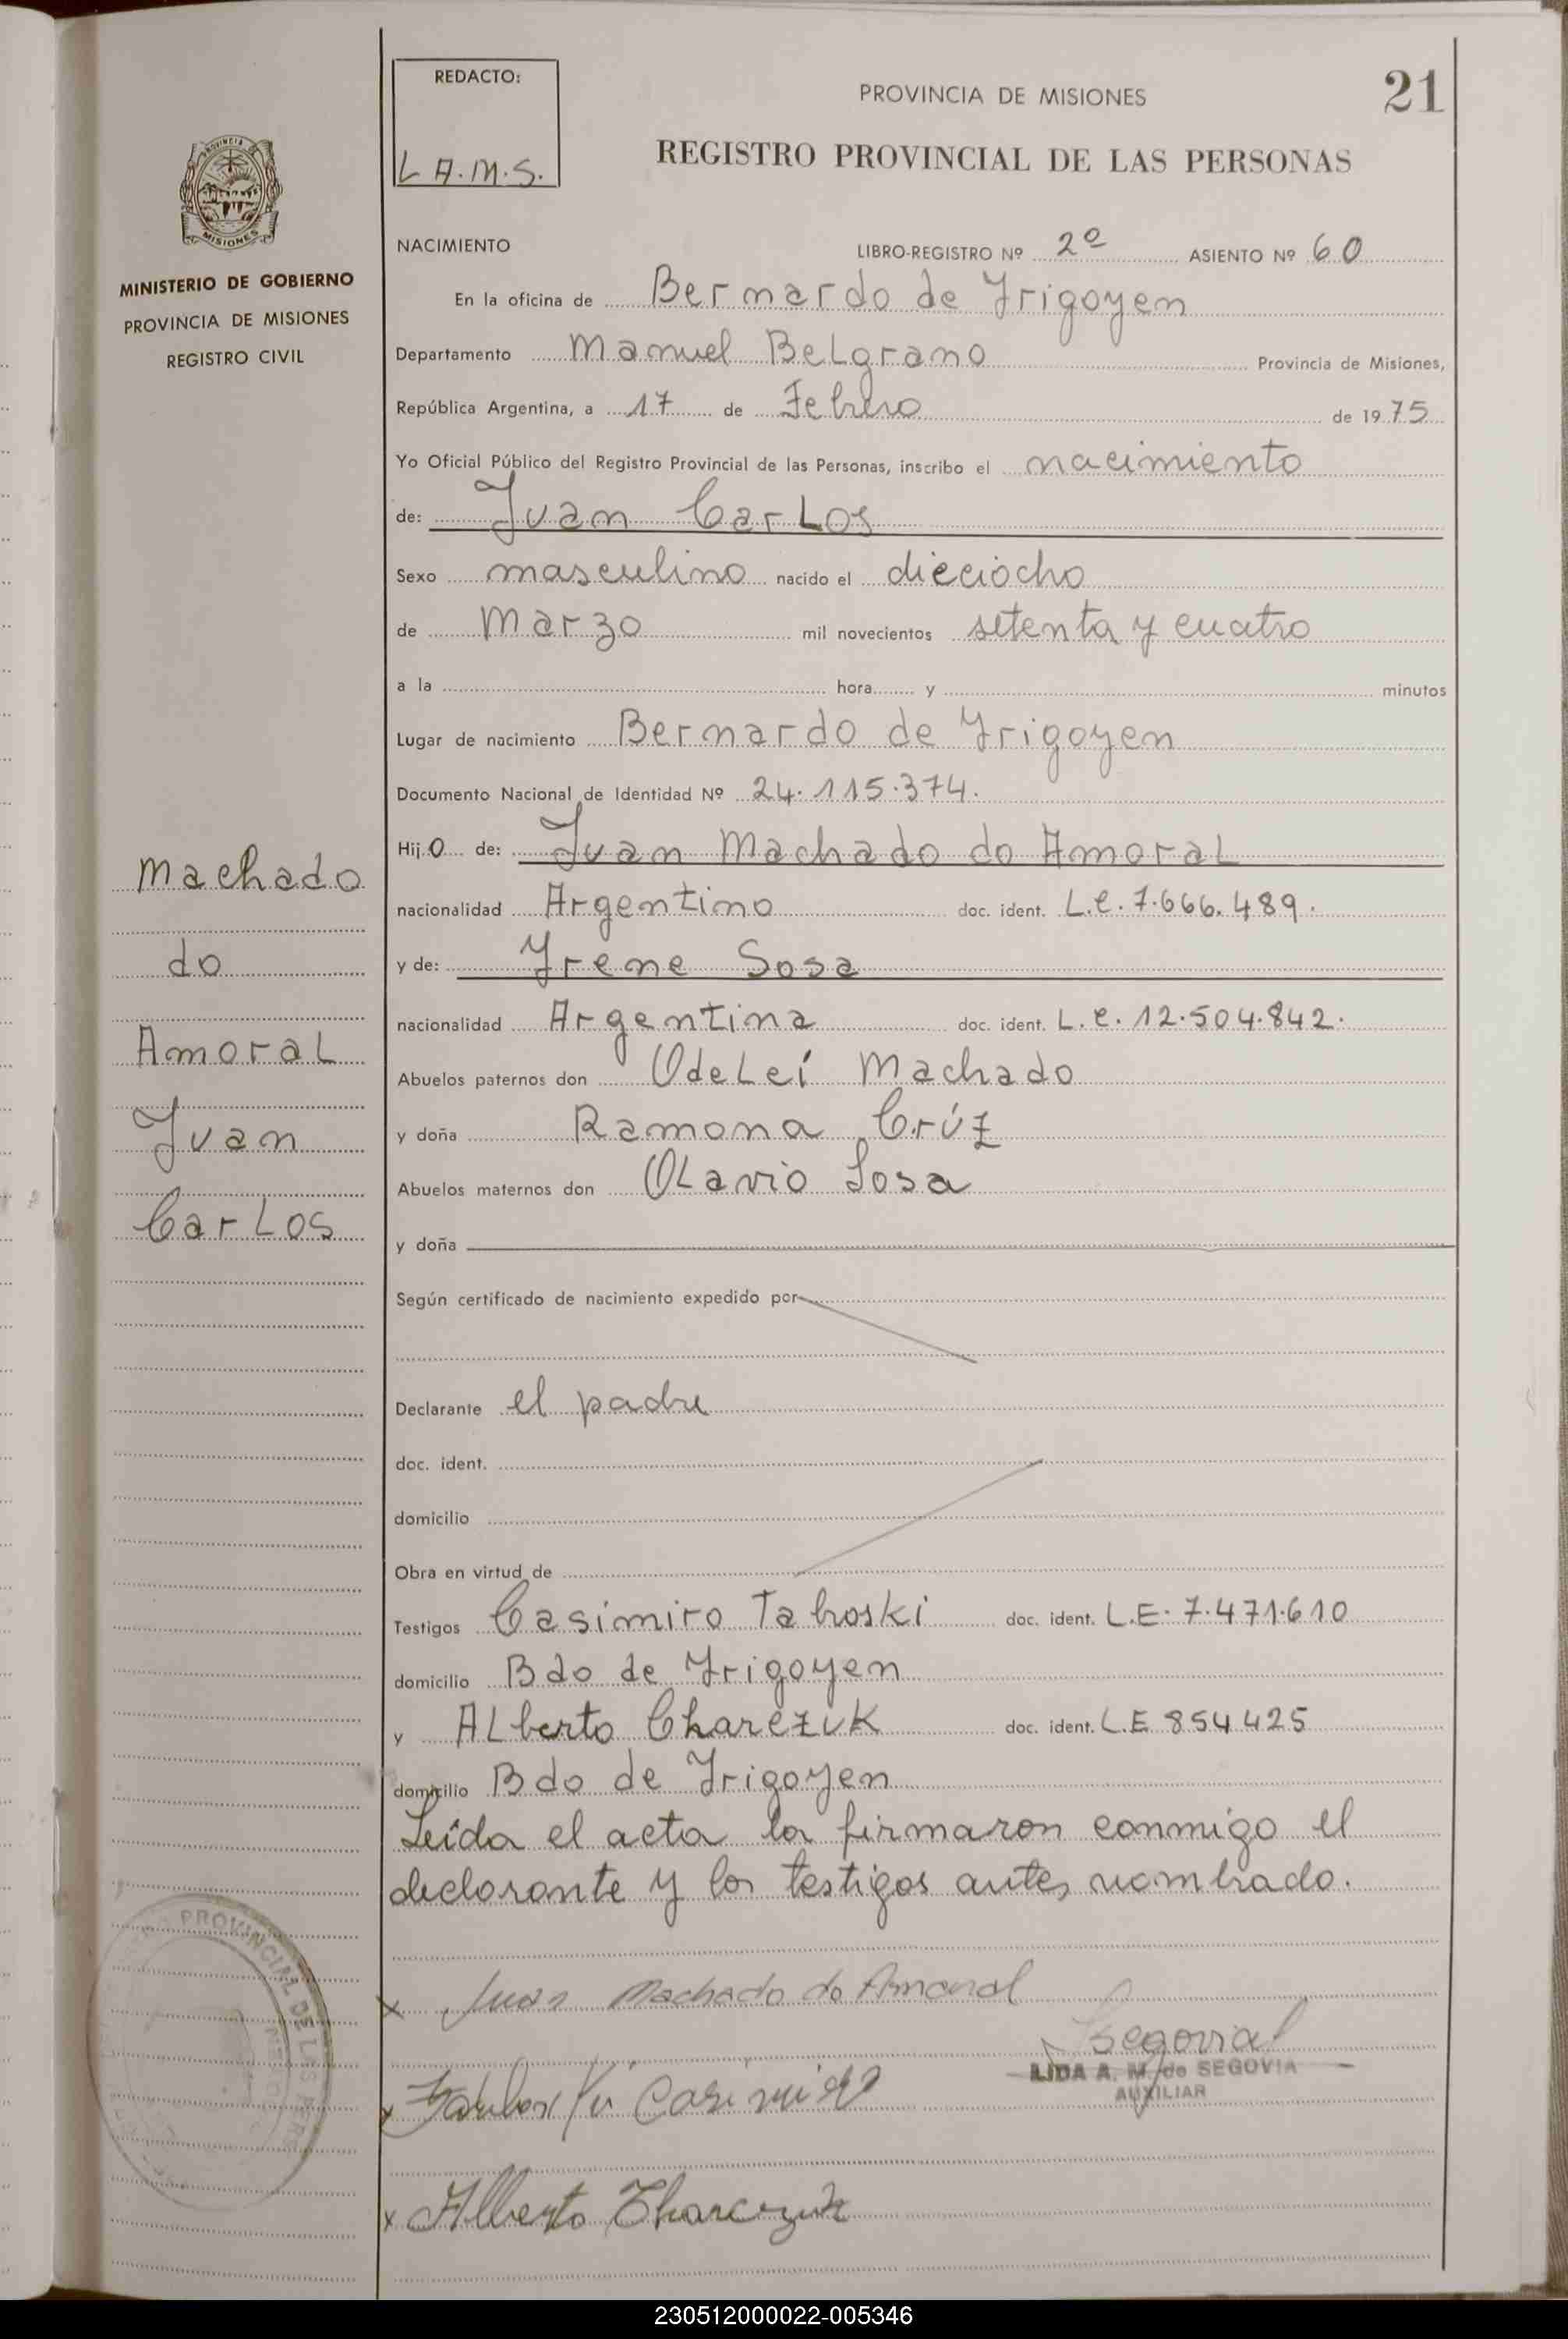 REDACTO:
L A.M.S.
PROVINCIA DE MISIONES
21
REGISTRO PROVINCIAL DE LAS PERSONAS
MISIONES
MINISTERIO DE GOBIERNO
PROVINCIA DE MISIONES
REGISTRO CIVIL
NACIMIENTO LIBRO-REGISTRO Nº 2º ASIENTO Nº 60
En la oficina de Bernardo de Yrigoyen
Departamento Manuel Belgrano Provincia de Misiones,
República Argentina, a 17 de Febrero de 1975
Yo Oficial Público del Registro Provincial de las Personas, inscribo el nacimiento
de: Juan Carlos
Sexo masculino nacido el dieciocho
de Marzo mil novecientos setenta y cuatro
a la hora y minutos
Lugar de nacimiento Bernardo de Yrigoyen
Documento Nacional de Identidad Nº 24.115.374.
Hijo de: Juan Machado do Amoral
nacionalidad Argentino doc. ident. L.e. 7.666.489.
y de: Yrene Sosa
nacionalidad Argentina doc. ident. L.e. 12.504.842.
Abuelos paternos don Odeleí Machado
y doña Ramona Crúz
Abuelos maternos don Olavio Sosa
y doña
Según certificado de nacimiento expedido por
Declarante el padre
doc. ident.
domicilio
Obra en virtud de
Testigos Casimiro Tabroski doc. ident. L.E. 7.471.610
domicilio Bdo de Yrigoyen
y Alberto Charczuk doc. ident. L.E 854425
domicilio Bdo de Yrigoyen
Leída el acta la firmaron conmigo el
declarante y los testigos antes nombrado.
Machado
do
Amoral
Juan
Carlos
PROVINCIAL DE LAS PERS
x Juan Machado do Amaral
Segovia
LIDA A. M. de SEGOVIA
AUXILIAR
x Casimiro
x Alberto Charczuk
230512000022-005346